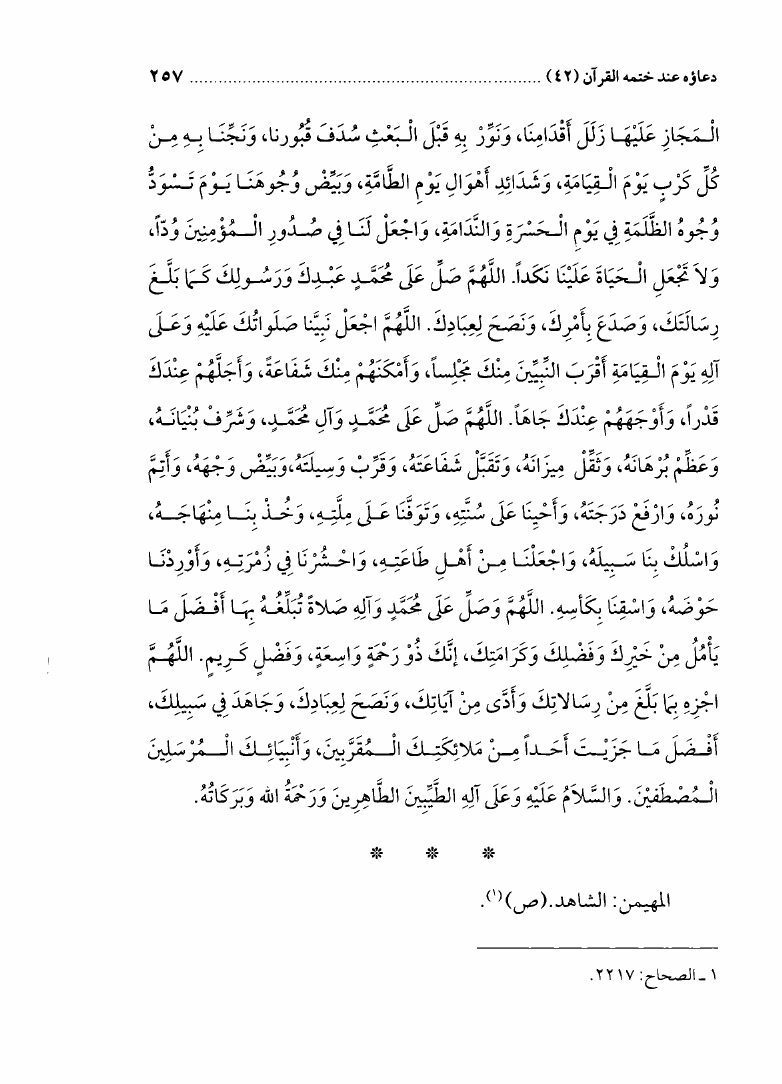 دعاؤه عند ختمه القرآن (٤٢) ................................................................ ٢٥٧
الْمَجَازِ عَلَيْهَا زَلَلَ أَقْدَامِنَا، وَنَوِّرْ بِهِ قَبْلَ الْبَعْثِ سُدَفَ قُبُورِنا، وَنَجِّنَا بِهِ مِنْ
كُلِّ كَرْبٍ يَوْمَ الْقِيَامَةِ، وَشَدَائِدِ أَهْوَالِ يَوْمِ الطَّامَّةِ، وَبَيِّضْ وُجُوهَنَا يَوْمَ تَسْوَدُّ
وُجُوهُ الظَّلَمَةِ فِي يَوْمِ الْحَسْرَةِ وَالنَّدَامَةِ، وَاجْعَلْ لَنَا فِي صُدُورِ الْمُؤْمِنِينَ وُدّاً،
وَلاَ تَجْعَلِ الْحَيَاةَ عَلَيْنَا نَكَداً. اللَّهُمَّ صَلِّ عَلَى مُحَمَّدٍ عَبْدِكَ وَرَسُولِكَ كَمَا بَلَّغَ
رِسَالَتَكَ، وَصَدَعَ بِأَمْرِكَ، وَنَصَحَ لِعِبَادِكَ. اللَّهُمَّ اجْعَلْ نَبِيَّنَا صَلَواتُكَ عَلَيْهِ وَعَلَى
آلِهِ يَوْمَ الْقِيَامَةِ أَقْرَبَ النَّبِيِّينَ مِنْكَ مَجْلِساً، وَأَمْكَنَهُمْ مِنْكَ شَفَاعَةً، وَأَجَلَّهُمْ عِنْدَكَ
قَدْراً، وَأَوْجَهَهُمْ عِنْدَكَ جَاهَاً. اللَّهُمَّ صَلِّ عَلَى مُحَمَّدٍ وَآلِ مُحَمَّد، وَشَرِّفْ بُنْيَانَهُ،
وَعَظِّمْ بُرْهَانَهُ، وَثَقِّلْ مِيزَانَهُ، وَتَقَبَّلْ شَفَاعَتَهُ، وَقَرِّبْ وَسِيلَتَهُ،وَبَيِّضْ وَجْهَهُ، وَأَتِمَّ
نُورَهُ، وَارْفَعْ دَرَجَتَهُ، وَأَحْيِنَا عَلَى سُنَّتِهِ، وَتَوَفَّنَا عَلَى مِلَّتِهِ، وَخُذْ بِنَا مِنْهَاجَهُ،
وَاسْلُكْ بِنَا سَبِيلَهُ، وَاجْعَلْنَا مِنْ أَهْلِ طَاعَتِهِ، وَاحْشُرْنَا فِي زُمْرَتِهِ، وَأَوْرِدْنَا
حَوْضَهُ، وَاسْقِنَا بِكَأسِهِ. اللَّهُمَّ وَصَلِّ عَلَى مُحَمَّدٍ وَآلِهِ صَلاَةً تُبَلِّغُهُ بِهَا أَفْضَلَ مَا
يَأْمُلُ مِنْ خَيْرِكَ وَفَضْلِكَ وَكَرَامَتِكَ، إنَّكَ ذُوْ رَحْمَةٍ وَاسِعَةٍ، وَفَضْلٍ كَرِيمٍ. اللَّهُمَّ
اجْزِهِ بِمَا بَلَّغَ مِنْ رِسَالاتِكَ وَأَدَّى مِنْ آيَاتِكَ، وَنَصَحَ لِعِبَادِكَ، وَجَاهَدَ فِي سَبِيلِكَ،
أَفْضَلَ مَا جَزَيْتَ أَحَداً مِنْ مَلائِكَتِكَ الْمُقَرَّبِينَ، وَأَنْبِيَائِكَ الْمُرْسَلِينَ
الْمُصْطَفَيْنَ. وَالسَّلاَمُ عَلَيْهِ وَعَلَى آلِهِ الطَّيِّبِينَ الطَّاهِرِينَ وَرَحْمَةُ الله وَبَرَكَاتُهُ.
❊ ❊ ❊
المهيمن: الشاهد.(ص)(١).
١ ـ الصحاح: ٢٢١٧.